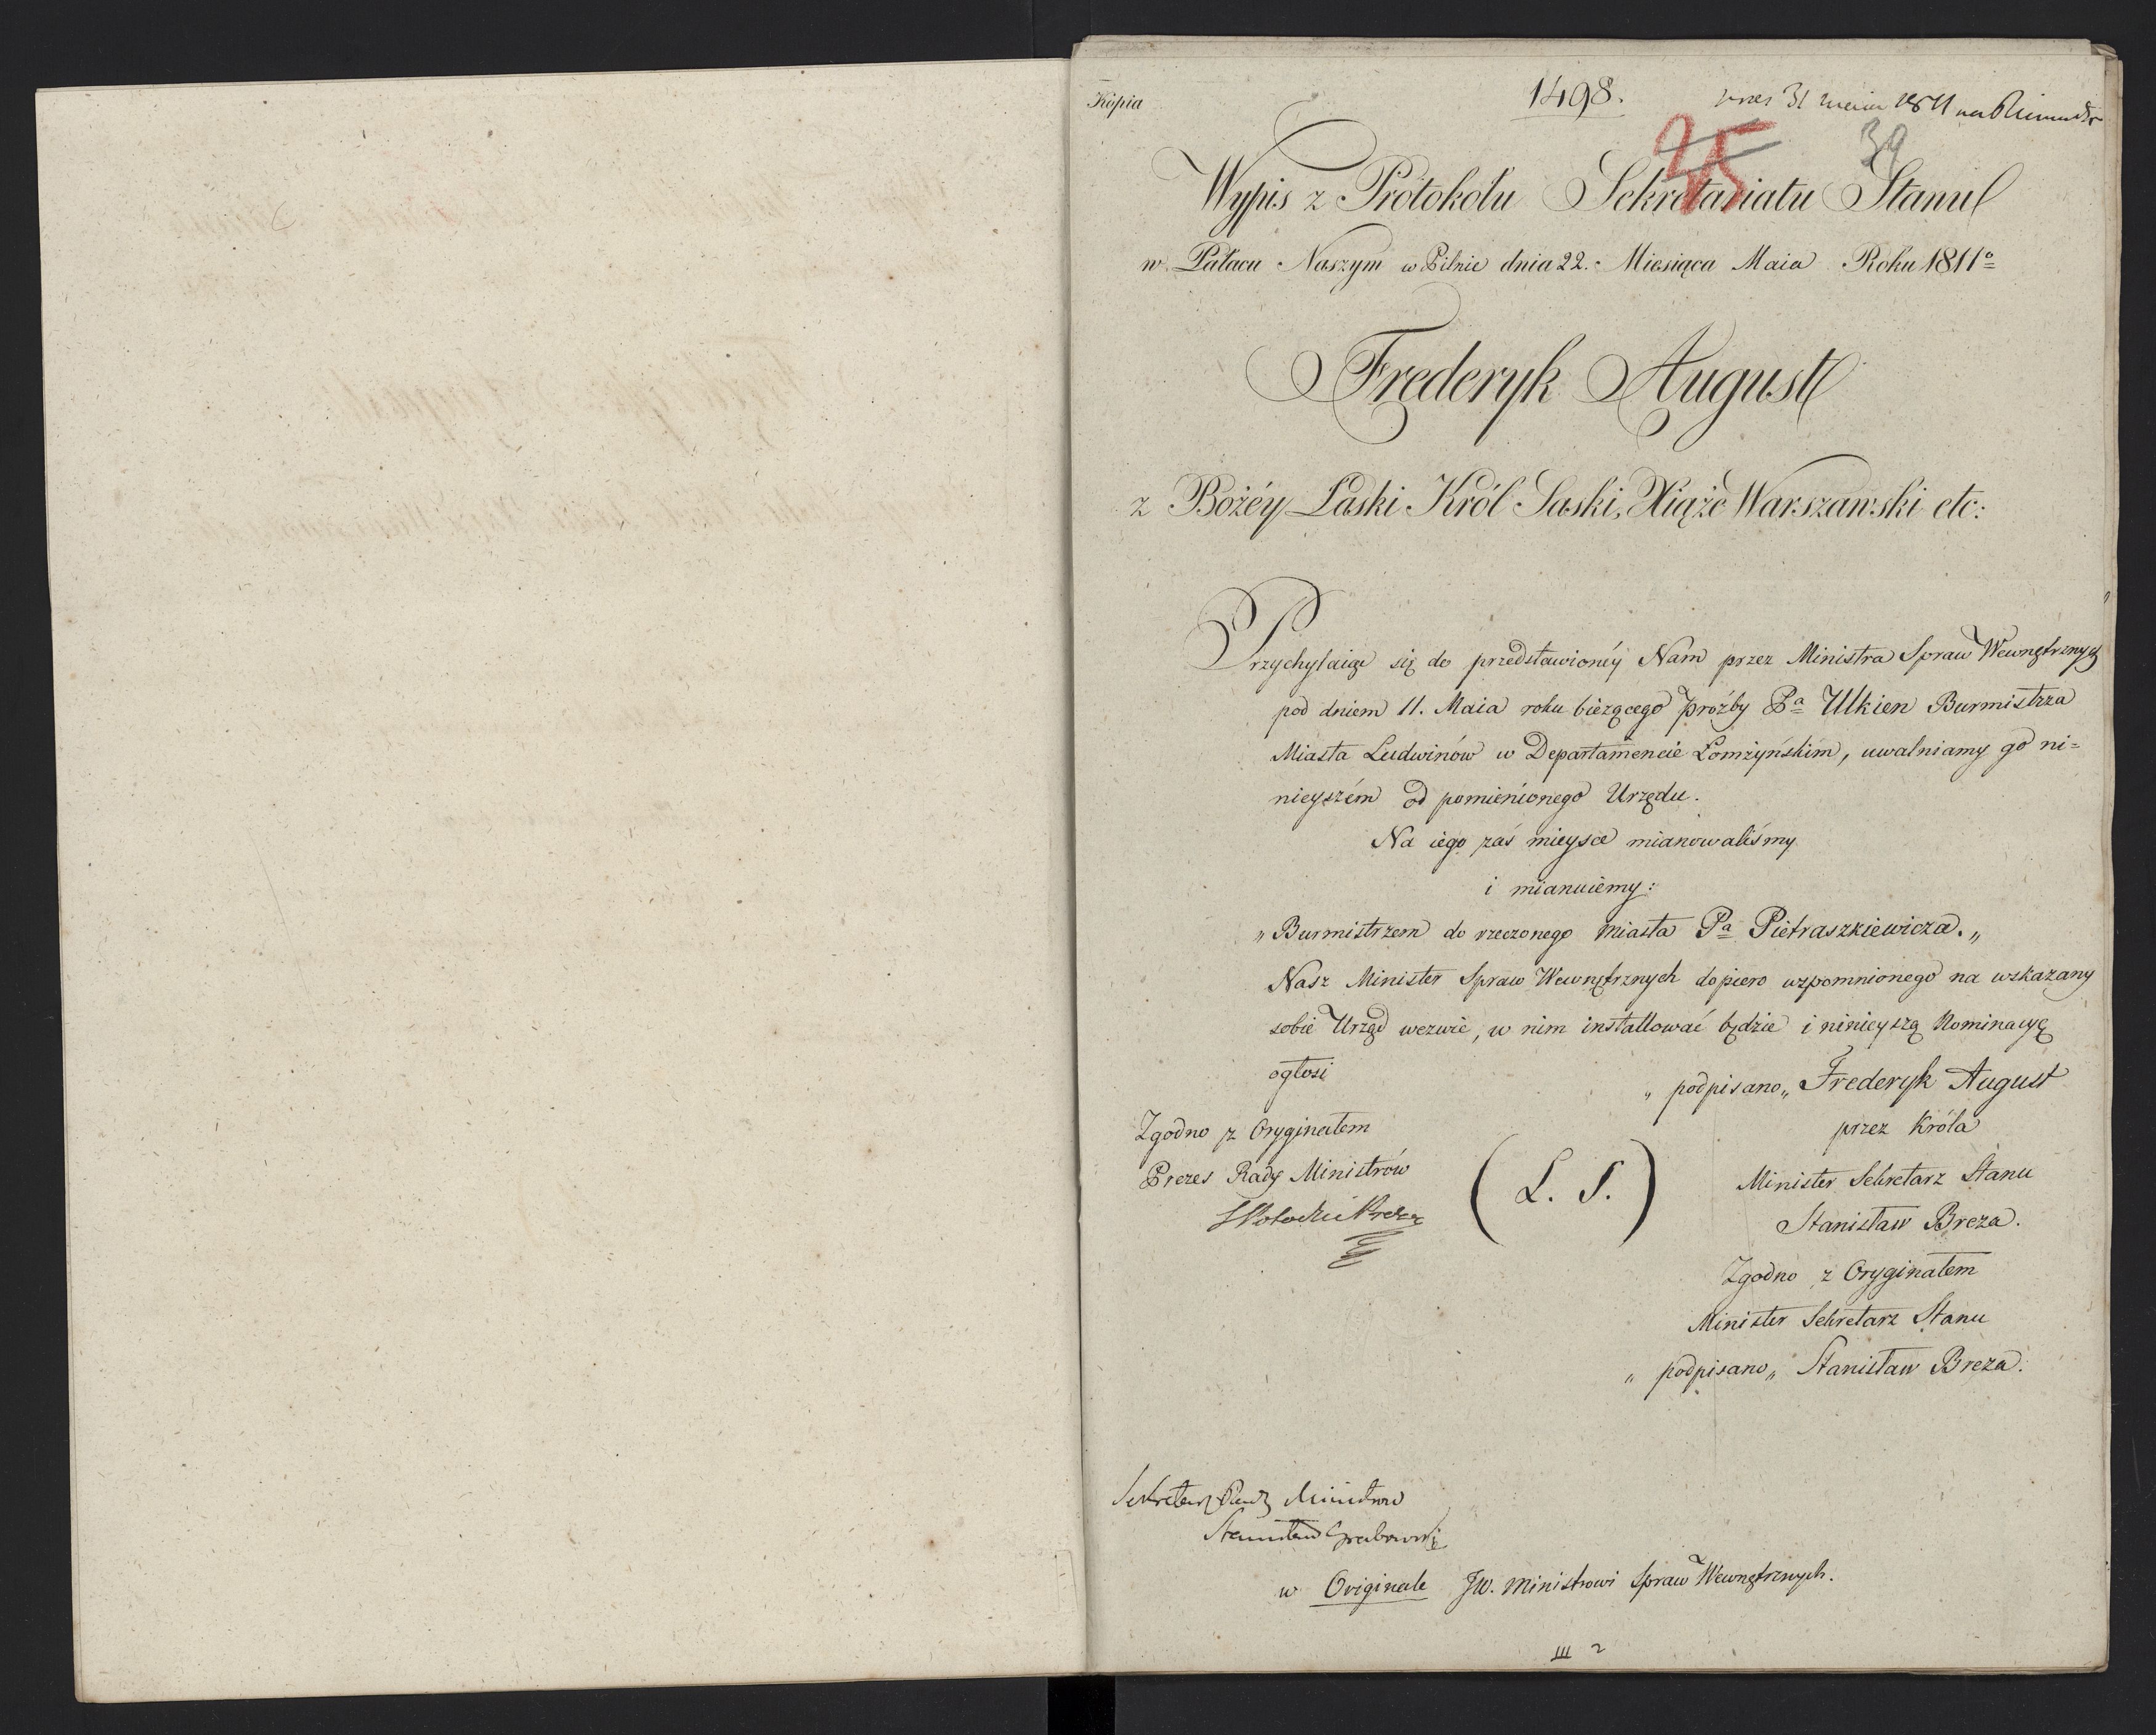 Kopia
1498.
31
1811 na
25
39
Wypis z Protokołu Sekretariatu Stanu
w Pałacu Naszym w Pilnie dnia 22. Miesiąca Maia Roku 1811o
Frederyk August
z Bożéy Łaski Król Saski, Xiąże Warszawski etc:
Przychylaiąc się do przedstawionéy Nam przez Ministra Spraw Wewnętrznych
pod dniem 11. Maia roku bieżącego proźby Pa Ulkien Burmistrza
Miasta Ludwinów w Departamencie Łomżyńskim, uwalniamy go ni=
nieyszém od pomienionego Urzędu.
Na iego zaś mieysce mianowaliśmy
i mianuiemy:
„Burmistrzem do rzeczonego Miasta Pa Pietraszkiewicza.„
Nasz Minister Spraw Wewnętrznych dopiero wspomnionego na wskazany
sobie Urząd wezwie, w nim installować będzie i ninieyszą Nominacyę
ogłosi
„podpisano„ Frederyk August
przez Króla
Zgodno z Oryginałem
Prezes Rady Ministrów
(L. S.)
Minister Sekretarz Stanu
Stanisław Breza.
Zgodno z Oryginałem
Minister Sekretarz Stanu
„podpisano„ Stanisław Breza.
Sekretarz Rady Ministrow
Stanisław Grabowski
w Originale JW. Ministrowi Spraw Wewnętrznych.
III 2